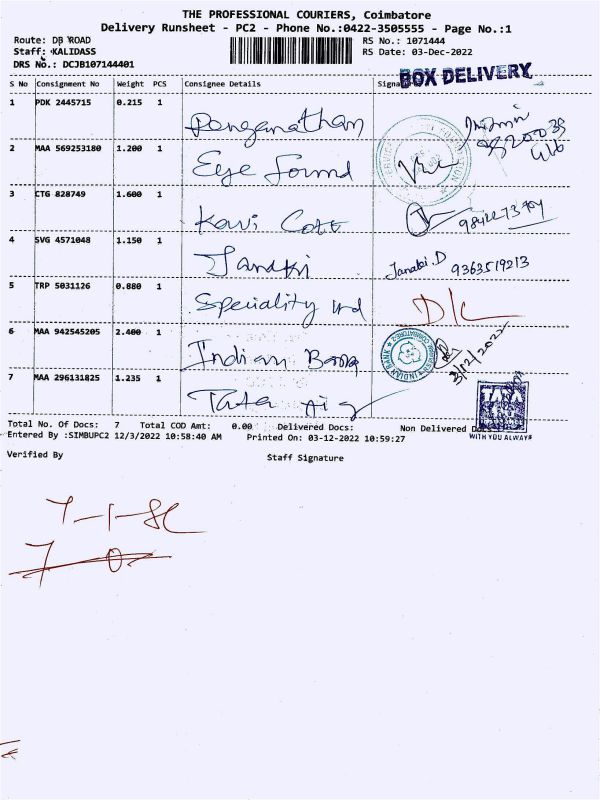 THE PROFESSIONAL COURIERS, Coimbatore
Delivery Runsheet - PC2 - Phone No.:0422-3505555 - Page No.:1
Route: DB ROAD
RS No.: 1071444
Staff: KALIDASS
RS Date: 03-Dec-2022
DRS No.: DCJB107144401
BOX DELIVERY
S No Consignment No Weight PCS Consignee Details
1 PDK 2445715 0.215 1 Ranganathan
2 MAA 569253180 1.200 1 Eye Found
3 CTG 828749 1.600 1 Kavi Cott 9842273704
4 SVG 4571048 1.150 1 Janaki Janaki.D 9363519213
5 TRP 5031126 0.880 1 Speciality D/L
6 MAA 942545205 2.400 1 Indian Bank 3/12/2022
7 MAA 296131825 1.235 1 Tata Aig
TATA
WITH YOU ALWAYS
Total No. Of Docs: 7 Total COD Amt: 0.00 Delivered Docs: Non Delivered Docs
Entered By :SIMBUPC2 12/3/2022 10:58:40 AM Printed On: 03-12-2022 10:59:27
Verified By Staff Signature
7 0